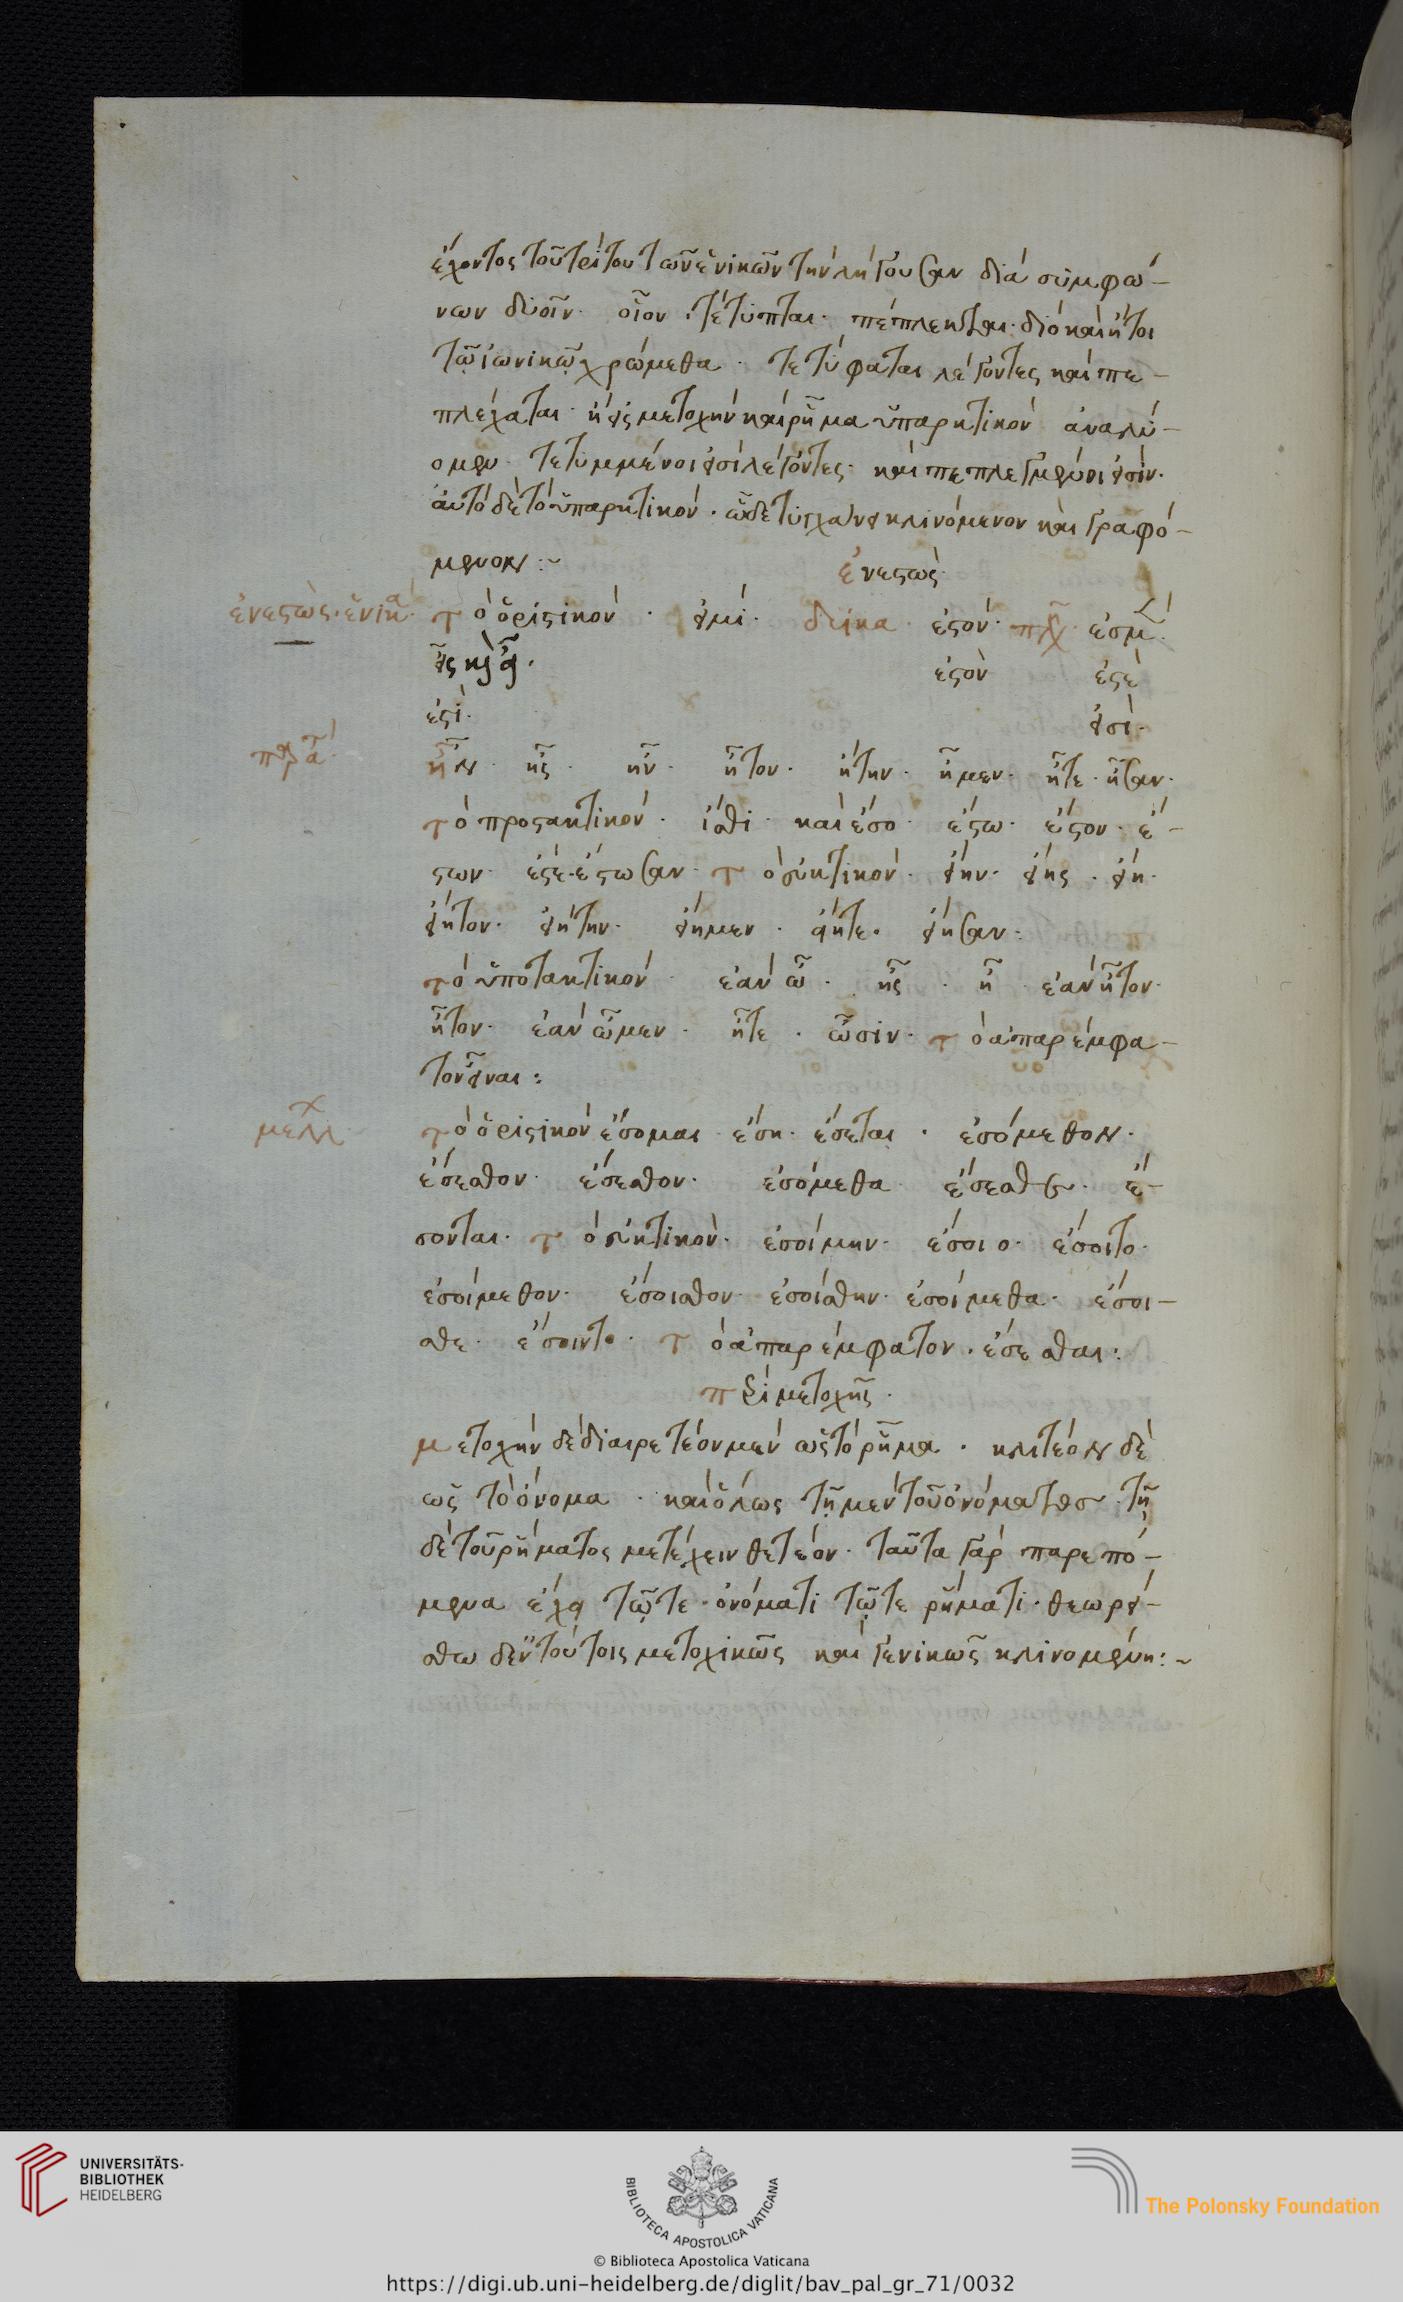 ἔχοντος τοῦ τρίτου τῶν ἑνικῶν τὴν λήγουσαν διὰ συμφώ-
νων δυοῖν. οἷον. τέτυπται. πέπλεκται. διὸ καὶ ἤτοι
τῷ ἰωνικῷ χρώμεθα. τετύφαται λέγοντες καὶ πε-
πλέχαται. ἢ εἰς μετοχὴν καὶ ῥῆμα ὑπαρκτικὸν ἀναλύ-
ομεν. τετυμμένοι εἰσὶ λέγοντες. καὶ πεπλεγμένοι εἰσίν.
αὐτὸ δὲ τὸ ὑπαρκτικὸν. ὧδε τυγχάνει κλινόμενον καὶ γραφό-
μενον:~
ἐνεστώς
ἐνεστὼς. ἑνικὰ. τὸ ὁριστικὸν. εἰμί. δυικα ἐστόν. πλ ἐσμ.
εἶς καὶ εἶ. ἐστὸν ἐστὲ
ἐστί. εἰσὶ.
παρατ. ἦν. ἦς. ἦν. ἦτον. ἤτην. ἦμεν. ἦτε. ἦσαν.
τὸ προστακτικόν. ἴσθι. καὶ ἔσο. ἔστω. ἔστον. ἔ-
στων. ἔστε. ἔστωσαν. τὸ εὐκτικόν. εἴην. εἴης. εἴη.
εἴητον. εἰήτην. εἴημεν. εἴητε. εἴησαν.
τὸ ὑποτακτικὸν. ἐὰν ὦ. ᾖς. ᾖ. ἐὰν ἦτον.
ἦτον. ἐὰν ὦμεν. ἦτε. ὦσιν. τὸ ἀπαρέμφα-
τον εἶναι:
μελλ τὸ ὁριστικὸν ἔσομαι. ἔση. ἔσεται. ἐσόμεθον.
ἔσεσθον. ἔσεσθον. ἐσόμεθα. ἔσεσθε. ἔ-
σονται. τὸ εὐκτικὸν. ἐσοίμην. ἔσοιο. ἔσοιτο.
ἐσοίμεθον. ἔσοισθον. ἐσοίσθην. ἐσοίμεθα. ἔσοι-
σθε. ἔσοιντο. τὸ ἀπαρέμφατον. ἔσεσθαι:
περὶ μετοχῆς.
μετοχὴν δὲ διαιρετέον μὲν ὡς τὸ ῥῆμα. κλιτέον δὲ
ὡς τὸ ὄνομα. καὶ ὅλως τῇ μὲν τοῦ ὀνόματος. τῇ
δὲ τοῦ ῥήματος μετέχειν θετέον. ταῦτα γὰρ παρεπό-
μενα ἔχει τῷ τε ὀνόματι τῷ τε ῥήματι. θεωρεί-
σθω δ' ἐν τούτοις μετοχικῶς καὶ γενικῶς κλινομένη:~
UNIVERSITÄTS-
BIBLIOTHEK
HEIDELBERG
BIBLIOTECA APOSTOLICA VATICANA
The Polonsky Foundation
© Biblioteca Apostolica Vaticana
https://digi.ub.uni-heidelberg.de/diglit/bav_pal_gr_71/0032